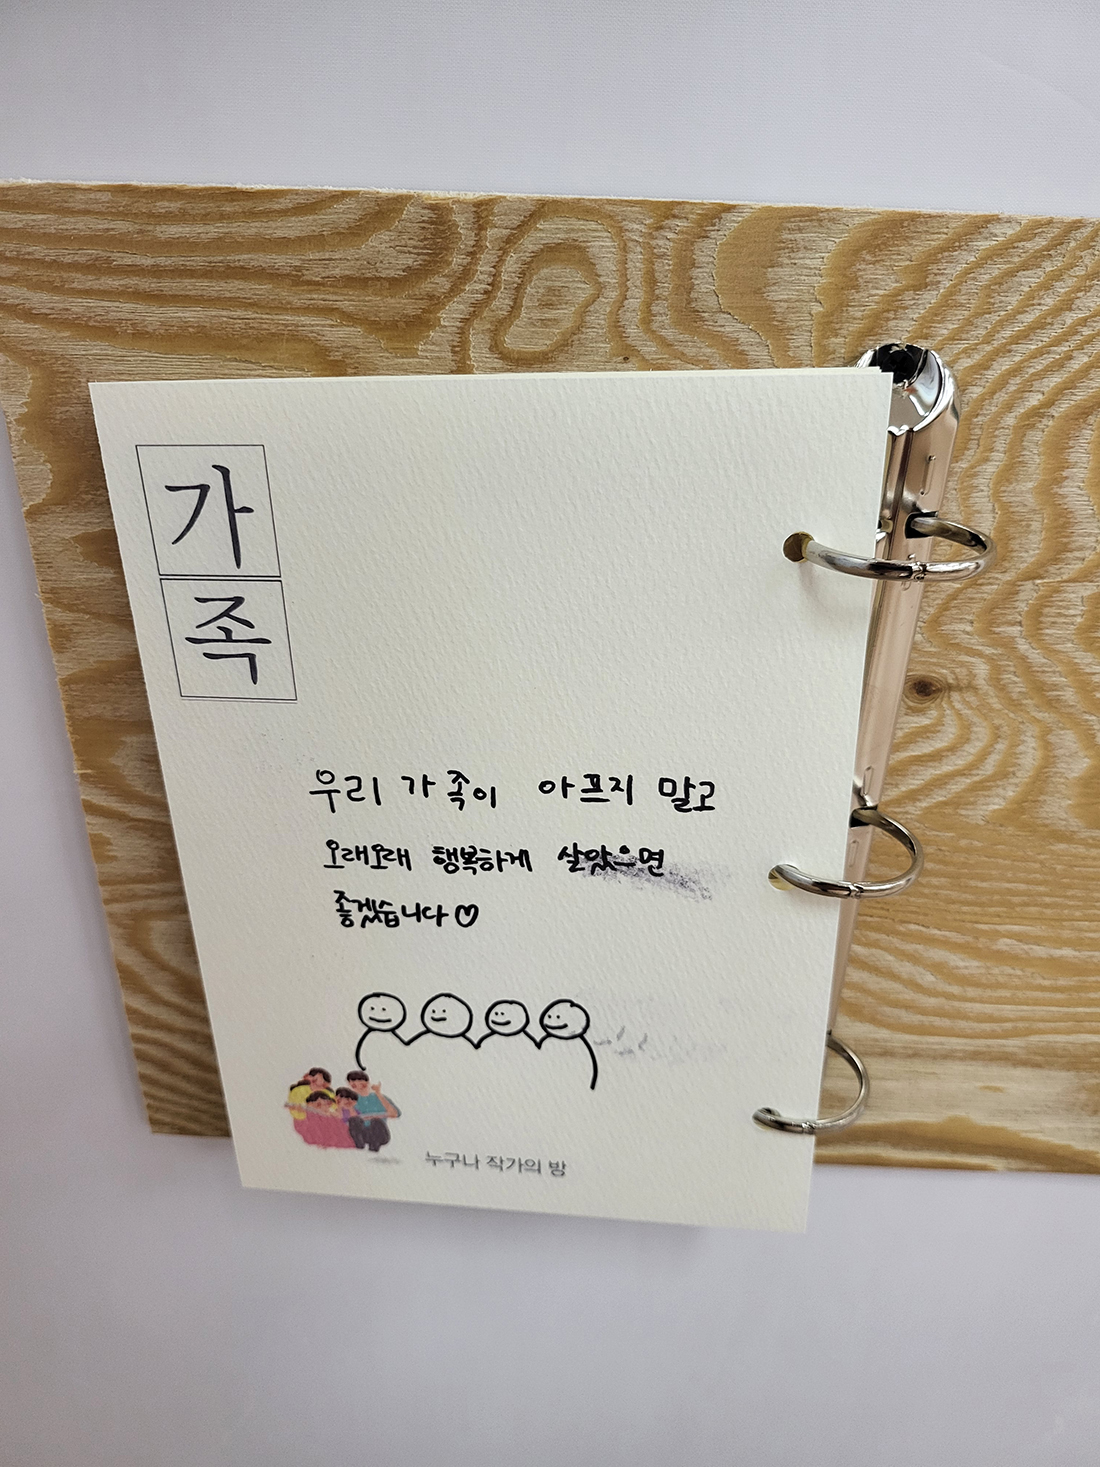 가
족
우리 가족이 아프지 말고
오래오래 행복하게 살았으면
좋겠습니다♡
누구나 작가의 방